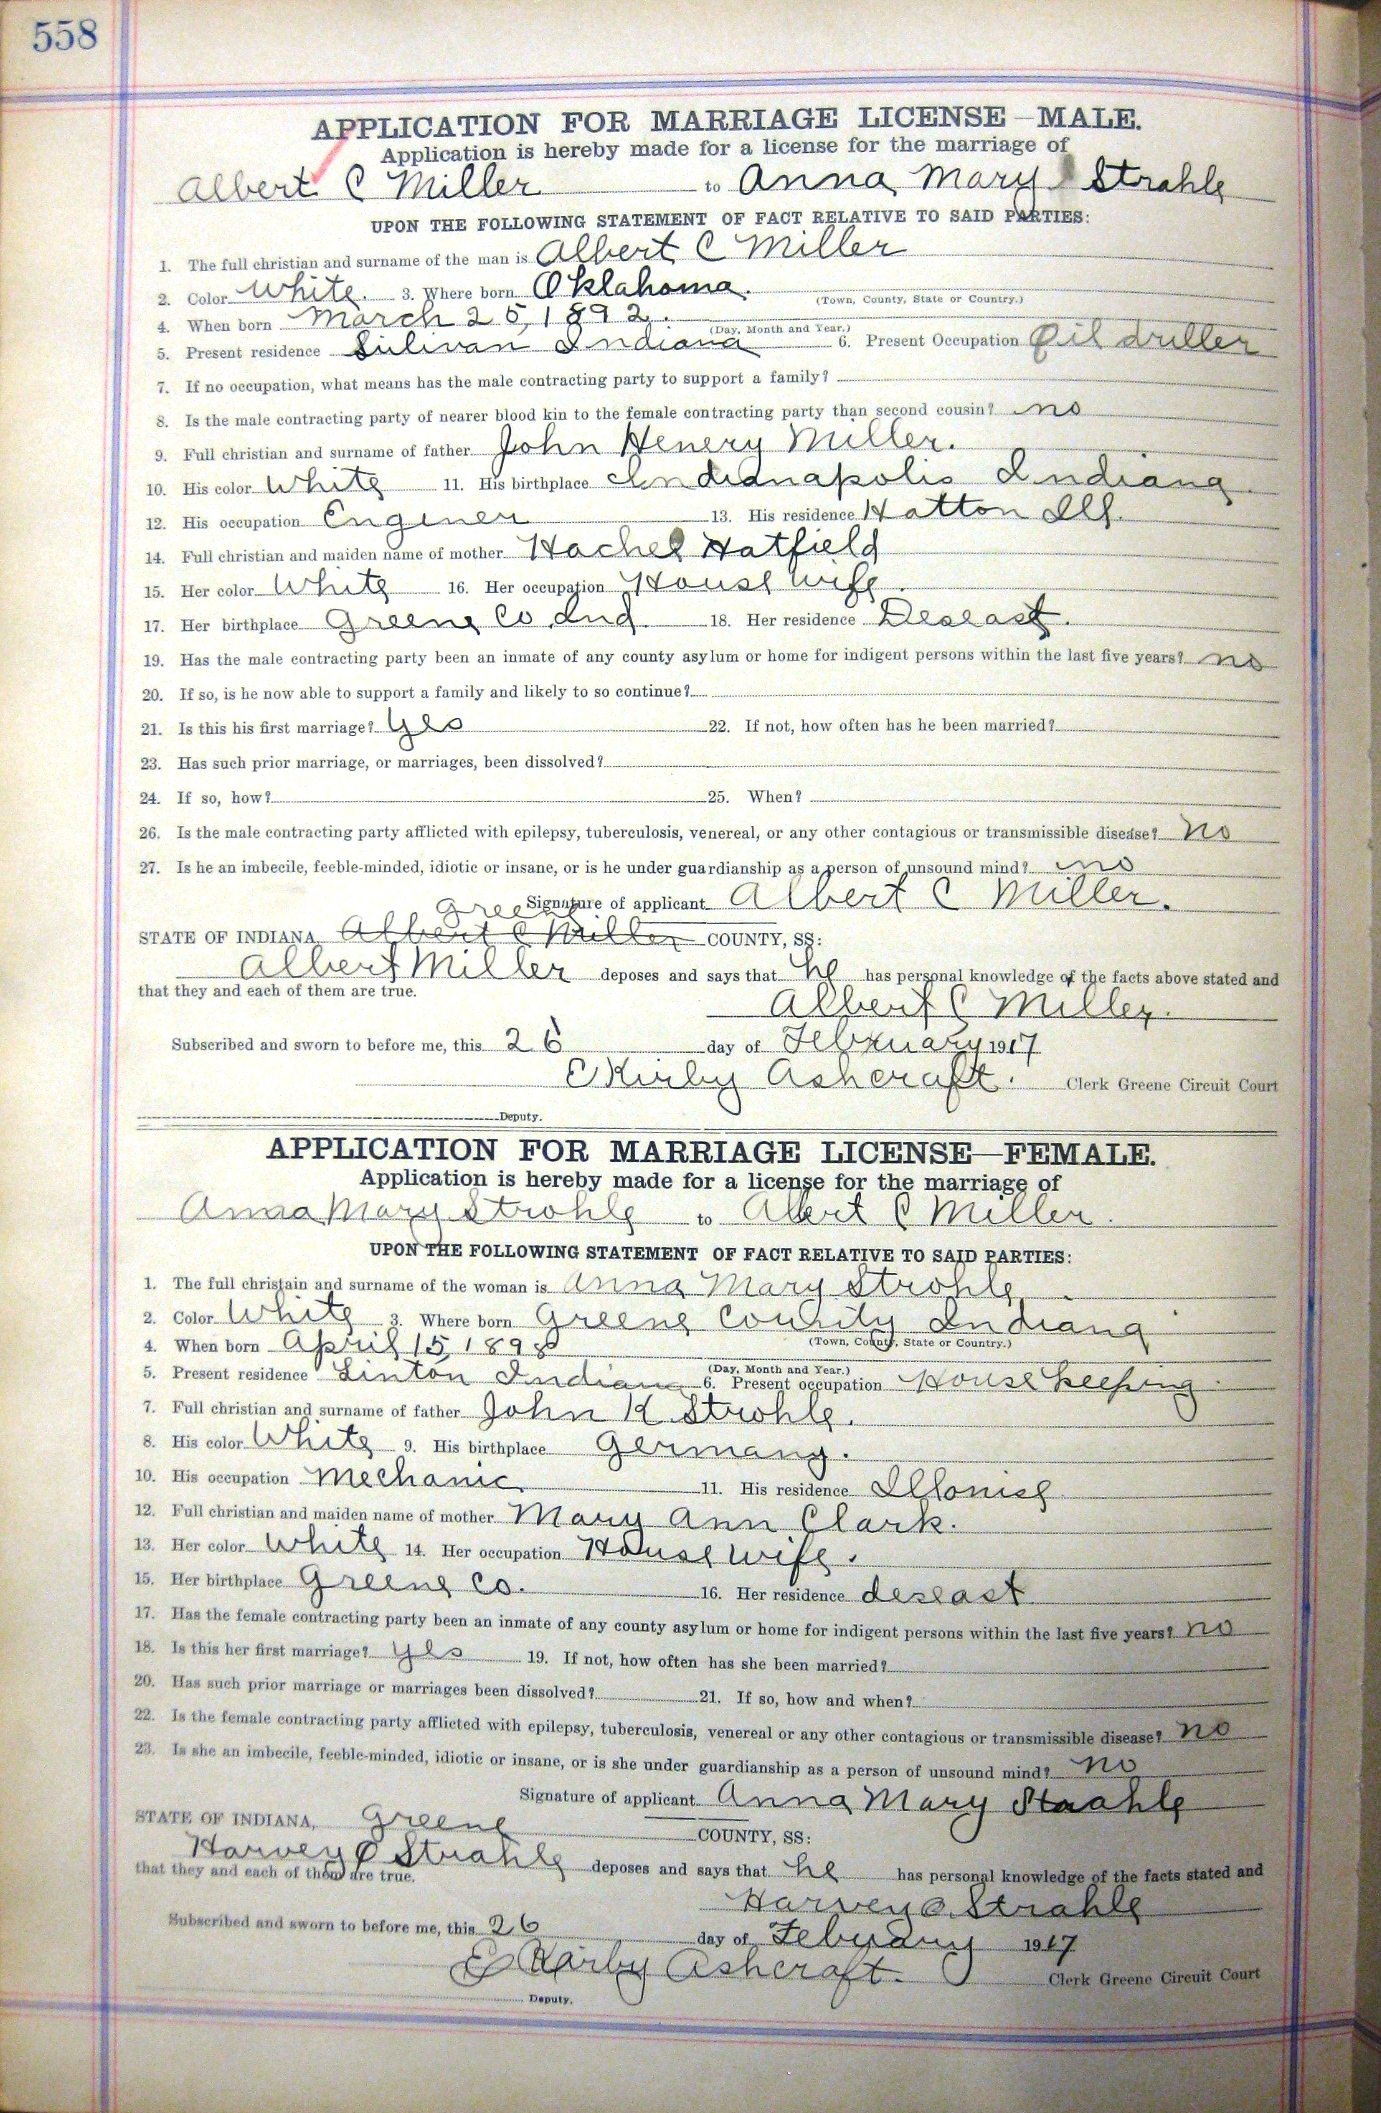 558
APPLICATION FOR MARRIAGE LICENSE—MALE.
Application is hereby made for a license for the marriage of
Albert C Miller to Anna Mary Strahle
UPON THE FOLLOWING STATEMENT OF FACT RELATIVE TO SAID PARTIES:
1. The full christian and surname of the man is Albert C Miller
2. Color White. 3. Where born Oklahoma.
(Town, County, State or Country.)
4. When born March 25, 1892.
(Day, Month and Year.)
5. Present residence Sulivan Indiana 6. Present Occupation Oil driller
7. If no occupation, what means has the male contracting party to support a family?
8. Is the male contracting party of nearer blood kin to the female contracting party than second cousin? no
9. Full christian and surname of father John Henery Miller.
10. His color White 11. His birthplace Indianapolis Indiana
12. His occupation Enginer 13. His residence Hatton Ill.
14. Full christian and maiden name of mother Hachel Hatfield
15. Her color White 16. Her occupation House wife.
17. Her birthplace Greene Co Ind 18. Her residence Deseast.
19. Has the male contracting party been an inmate of any county asylum or home for indigent persons within the last five years? no
20. If so, is he now able to support a family and likely to so continue?
21. Is this his first marriage? yes 22. If not, how often has he been married?
23. Has such prior marriage, or marriages, been dissolved?
24. If so, how? 25. When?
26. Is the male contracting party afflicted with epilepsy, tuberculosis, venereal, or any other contagious or transmissible disease? no
27. Is he an imbecile, feeble-minded, idiotic or insane, or is he under guardianship as a person of unsound mind? no
Signature of applicant Albert C Miller.
Greene
STATE OF INDIANA, Albert C Miller COUNTY, SS:
Albert Miller deposes and says that he has personal knowledge of the facts above stated and
that they and each of them are true.
Albert C Miller.
Subscribed and sworn to before me, this 26 day of February 1917
E Kirby Ashcraft. Clerk Greene Circuit Court
Deputy.
APPLICATION FOR MARRIAGE LICENSE—FEMALE.
Application is hereby made for a license for the marriage of
Anna Mary Strohle to Albert C Miller.
UPON THE FOLLOWING STATEMENT OF FACT RELATIVE TO SAID PARTIES:
1. The full christain and surname of the woman is Anna Mary Strohle.
2. Color White 3. Where born Greene County Indiana
(Town, County, State or Country.)
4. When born April 15, 1898
(Day, Month and Year.)
5. Present residence Linton Indiana 6. Present occupation House keeping.
7. Full christian and surname of father John K Strohle.
8. His color White 9. His birthplace Germany.
10. His occupation Mechanic 11. His residence Illonise
12. Full christian and maiden name of mother Mary Ann Clark.
13. Her color White 14. Her occupation House wife.
15. Her birthplace Greene Co. 16. Her residence deseast
17. Has the female contracting party been an inmate of any county asylum or home for indigent persons within the last five years? no
18. Is this her first marriage? yes 19. If not, how often has she been married?
20. Has such prior marriage or marriages been dissolved? 21. If so, how and when?
22. Is the female contracting party afflicted with epilepsy, tuberculosis, venereal or any other contagious or transmissible disease? no
23. Is she an imbecile, feeble-minded, idiotic or insane, or is she under guardianship as a person of unsound mind? no
Signature of applicant Anna Mary Strahle
STATE OF INDIANA, Greene COUNTY, SS:
Harvey O Strahle deposes and says that he has personal knowledge of the facts stated and
that they and each of them are true.
Harvey O. Strahle
Subscribed and sworn to before me, this 26 day of Februany 1917
E Kirby Ashcraft. Clerk Greene Circuit Court
Deputy.